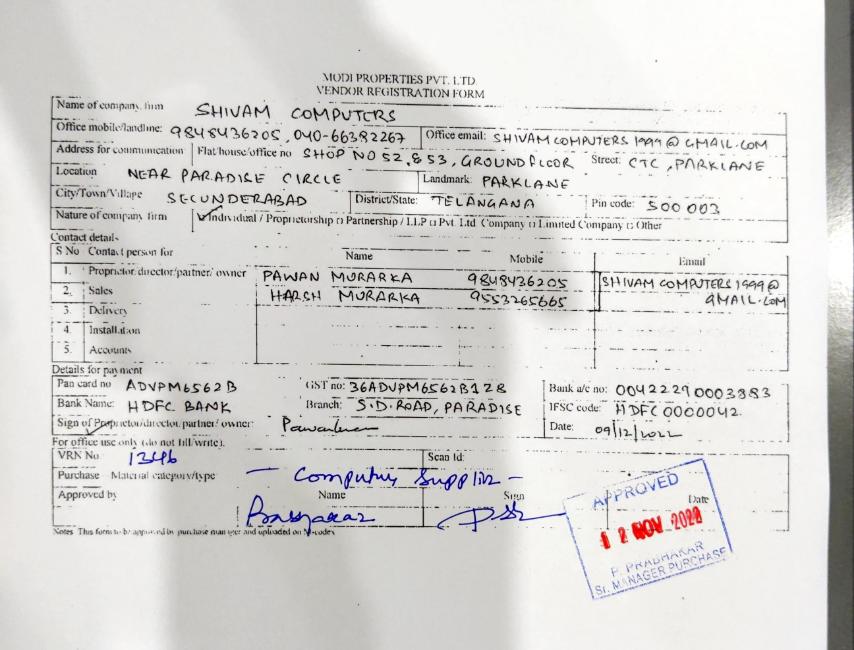 MODI PROPERTIES PVT. LTD
VENDOR REGISTRATION FORM
Name of company firm SHIVAM COMPUTERS
Office mobile/landline: 9848436205, 040-66382267 Office email: SHIVAMCOMPUTERS1999@GMAIL.COM
Address for communication Flat/house/office no SHOP NO 52, & 53, GROUND FLOOR Street: CTC, PARKLANE
Location NEAR PARADISE CIRCLE Landmark: PARKLANE
City/Town/Village SECUNDERABAD District/State: TELANGANA Pin code: 500 003
Nature of company firm Individual / Proprietorship □ Partnership / LLP □ Pvt. Ltd Company □ Limited Company □ Other
Contact details
S No Contact person for Name Mobile Email
1. Proprietor/director/partner/ owner PAWAN MURARKA 9848436205 SHIVAM COMPUTERS 1999@
2. Sales HARSH MURARKA 9553265665 GMAIL.COM
3. Delivery
4. Installation
5. Accounts
Details for payment
Pan card no ADVPM6562B GST no: 36ADVPM6562B1Z8 Bank a/c no: 00422290003383
Bank Name: HDFC BANK Branch: S.D. ROAD, PARADISE IFSC code: HDFC0000042
Sign of Proprietor/director/partner/ owner: Date: 09/12/2022
For office use only (do not fill/write).
VRN No 1346 Scan Id:
Purchase Material category/type - Computer Supplier -
Approved by Name Sign Date
Notes This form to be approved by purchase manager and uploaded on
APPROVED
12 NOV 2022
P. PRABHAKAR
Sr. MANAGER PURCHASE